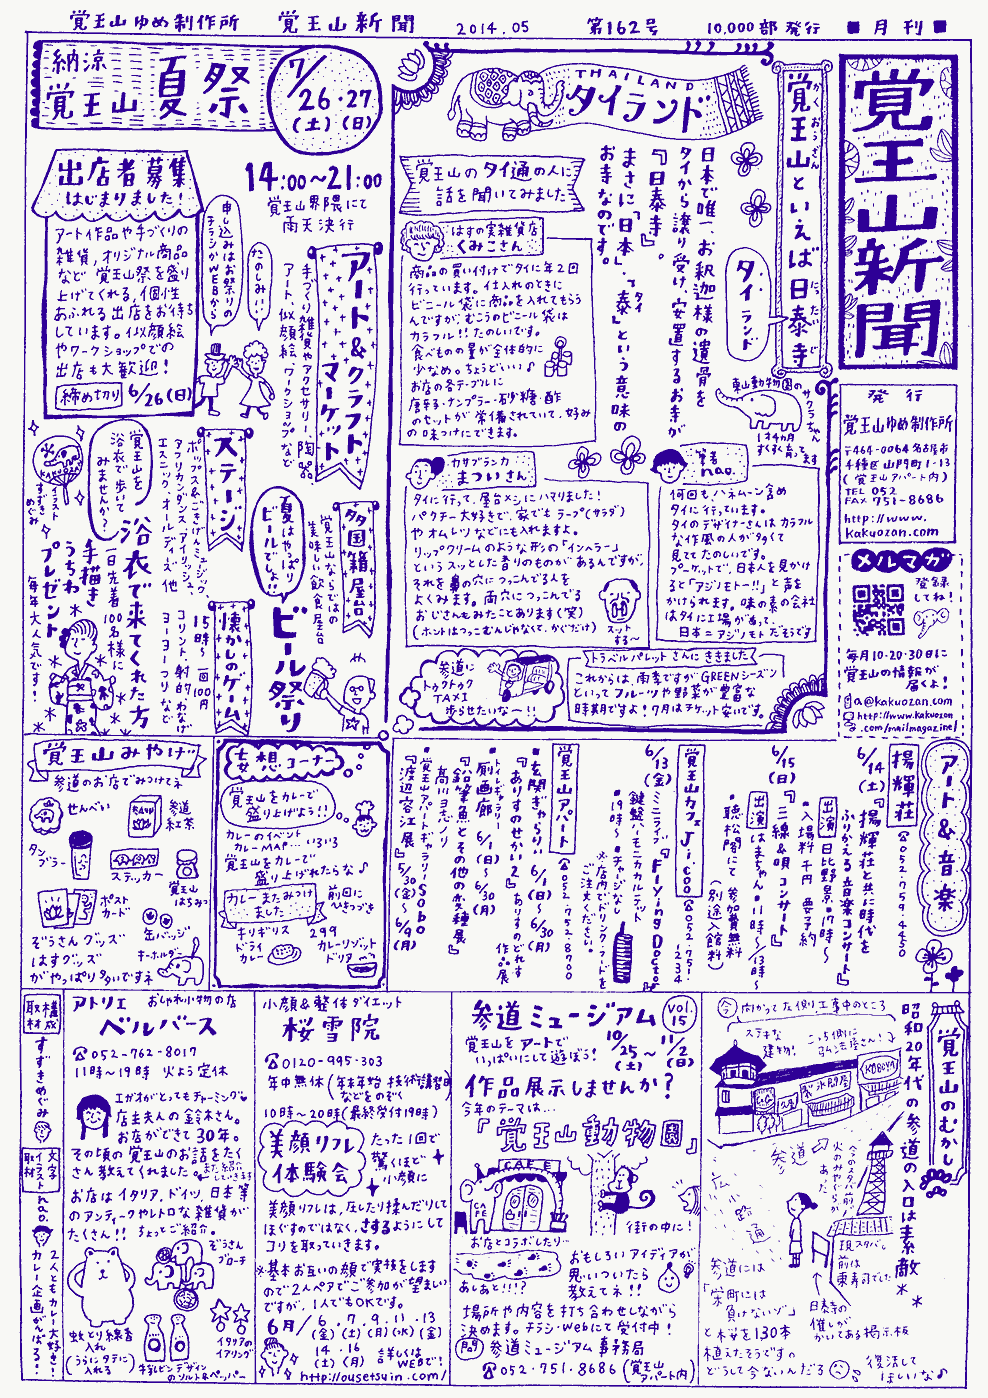 覚王山ゆめ制作所　覚王山新聞　2014.05　第162号　10,000部発行　■月刊■
覚王山新聞
発行
覚王山ゆめ制作所
〒464-0064 名古屋市
千種区山門町1-13
(覚王山アパート内)
TEL 052
FAX 751-8686
http://www.
kakuozan.com
メルマガ
登録
してね！
毎月10・20・30日に
覚王山の情報が
届くよ！
a@kakuozan.com
http://www.kakuozan
.com/mailmagazine/
覚王山といえば日泰寺
かくおうざん
にったいじ
タイランド
THAILAND
タイランド
日本で唯一、お釈迦様の遺骨を
タイから譲り受け、安置するお寺が
『日泰寺』。
まさに『日本』・『泰』という意味の
タイ
お寺なのです。
東山動物園の
サクラちゃん
1才4ヵ月
すくすく育ってます
覚王山のタイ通の人に
話を聞いてみました
はすの実雑貨店
くみこさん
商品の買い付けでタイに年2回
行っています。仕入れのときに
ビニール袋に商品を入れてもらう
んですが、むこうのビニール袋は
カラフル！！たのしいです。
食べものの量が全体的に
少なめ。ちょうどいい♪
お店の各テーブルに
唐辛子・ナンプラー・砂糖・酢
のセットが常備されていて、好み
の味つけにできます。
カサブランカ
まついさん
タイに行って、屋台メシにハマりました！
パクチー大好きで、家でもラープ(サラダ)
やオムレツなどにも入れますよ。
リップクリームのような形の「インヘラー」
というスッとした香りのものがあるんですが、
それを鼻の穴につっこんでる人を
よくみます。両穴につっこんでる
おじさんもみたことあります(笑)
(ホントはつっこむんじゃなくて、かぐだけ)
スットする〜
筆者
nao.
何回も、ハネムーン含め
タイに行っています。
タイのデザイナーさんはカラフル
な作風の人が多くて
見ててたのしいです。
プーケットで、日本人を見かけ
ると「アジノモトー!!」と声を
かけられます。味の素の会社
はタイに工場があって…
日本=アジノモトだそうです
参道に
トゥクトゥク
TAXI
歩らせたいな〜!!
トラベルパレットさんにききました
これからは、雨季ですがGREENシーズン
といってフルーツや野菜が豊富な
時期ですよ！7月はチケット安いです。
納涼
覚王山 夏祭
7/26・27
(土)(日)
14:00〜21:00
覚王山界隈にて
雨天決行
出店者募集
はじまりました！
アート作品や手づくりの
雑貨、オリジナル商品
など 覚王山祭を盛り
上げてくれる、個性
あふれる出店をお待ち
しています。似顔絵
やワークショップでの
出店も大歓迎！
締め切り 6/26(日)
申し込みはお祭りの
チラシかWEBから
たのしみい〜
アート＆クラフト
マーケット
手づくり雑貨やアクセサリー、陶器
アート、似顔絵、ワークショップなど
ステージ
ポップス＆ごきげんミュージック
アフリカンダンス、アイリッシュ、
エスニック、オールディーズ 他
多国籍屋台
覚王山ならではの
美味しい飲食屋台
夏はやっぱり
ビールでしょ!!
ビール祭り
懐かしのゲーム
15時〜 一回100円
コリント、射的、わなげ
ヨーヨーつりなど
覚王山を
浴衣で歩いて
みませんか？
浴衣で来てくれた方
一日先着100名様に
手描き
うちわ
プレゼント
毎年大人気です！
イラスト
すずきめぐみ
覚王山みやげ
参道のお店でみつけてネ
せんべい
参道
紅茶
タンブラー
ステッカー
覚王山
はちみつ
ポスト
カード
缶バッジ
ぞうさんグッズ
はすグッズ
キーホルダー
がやっぱり多いですネ
妄想コーナー
覚王山をカレーで
盛り上げよう!!
カレーのイベント
カレーMAP…いろいろ
覚王山をカレーで
盛り上げれたらな♪
カレーまたみつけ
ました
前回に
ひきつづき
キリギリス 299
ドライ
カレー
カレーリゾット
ドリア
アート＆音楽
揚輝荘 ☎052-759-4450
6/14(土)『揚輝荘と共に時代を
ふりかえる音楽コンサート』
出演 日比野景・19時〜
・入場料 千円 要予約
6/15(日)『三線＆唄コンサート』
出演 はまちゃん・11時〜/13時〜
・聴松閣にて 参加費無料
(別途入館料)
覚王山カフェJi.coo ☎052-751-1234
6/13(金)ミニライブ『Flying Doctor』
鍵盤ハーモニカカルテット
・19時〜・チャージなし
※店内でドリンク・フードを
ご注文ください。
覚王山アパート ☎052-752-8700
・玄関ぎゃらりぃ 6/1(日)〜6/30(月)
『ありすのせかい2』ありすのとけいず
作品展
・トイレギャラリー
廁画廊 6/1(日)〜6/30(月)
『鉛筆魚とその他の変種展』
高川ヨ志ノリ
・覚王山アパートギャラリーSobo
『渡辺容江展』5/30(金)〜6/9(月)
取材
構成
すずきめぐみ
取材
イラスト
文字
nao.
2人ともカレー大好き！
カレー企画がんばる！
アトリエ
おしゃれ小物の店
ベルバース
☎052-762-8017
11時〜19時 火よう定休
エガオがとってもチャーミング♥
店主夫人の鈴木さん。
お店ができて30年。
その頃の覚王山のお話をたく
さん教えてくれました。また紹介していきます
お店はイタリア、ドイツ、日本等
のアンティークやレトロな雑貨が
たくさん!! ちょっとご紹介。
ぞうさん
ブローチ
蚊とり線香
入れ
(うらにタテに)
入れる
牛乳ビンデザイン
のソルト＆ペッパー
イタリアの
イアリング
小顔＆整体ダイエット
桜雪院
☎0120-995-303
年中無休(年末年始 技術講習日などをのぞく)
10時〜20時(最終受付19時)
美顔リフレ
体験会
たった1回で
驚くほど
小顔に
美顔リフレは、圧したり揉んだりして
ほぐすのではなく、さするようにして
コリを取っていきます。
※基本お互いの顔で実技をします
ので2人ペアでご参加が望ましい
ですが、1人でもOKです。
6月/6・7・9・11・13
(金)(土)(月)(水)(金)
14・16
(土)(月)
詳しくは
WEBで！
http://ousetsuin.com/
参道ミュージアム
Vol.15
覚王山をアートで
いっぱいにして遊ぼう！
10/25(土)〜11/2(日)
作品展示しませんか？
今年のテーマは…
『覚王山動物園』
CAFE
お店とコラボしたり…
街の中に！
あしあと!!!?
おもしろいアイディアが
思いついたら
教えてネ!!
場所や内容を打ち合わせしながら
決めます。チラシ・Webにて受付中！
問 参道ミュージアム事務局
☎052・751・8686(覚王山アパート内)
覚王山のむかし
昭和20年代の参道の入口は素敵
今 向かって左側、工事中のところ
ステキな
建物！
こっち側に
弘法屋さん！♪
製氷問屋
KOBOYA
参道
今のスタバ前
火のみやぐらが
あった
広い道路
現スタバ。
前は
東寿司でした
参道には
「栄町には
負けないゾ」
と木々を130本
植えたそうですの
どうして今ないんだろ
日泰寺の
催しが
かいてある掲示板
復活して
ほしいな♪